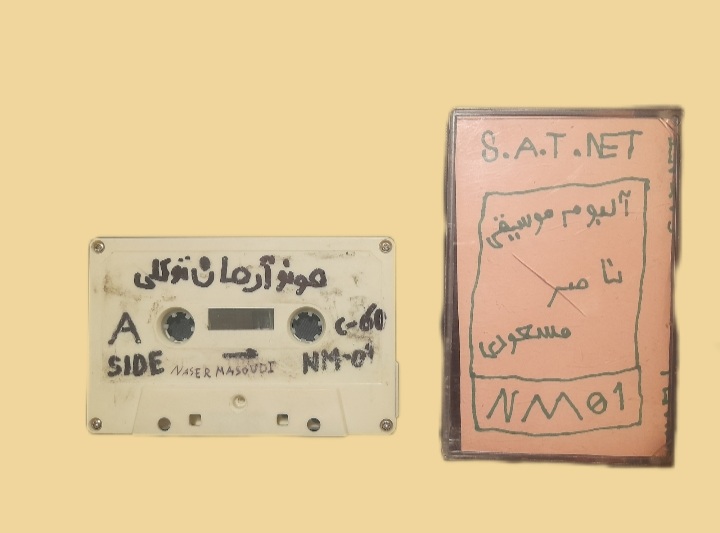 مونو آرمان توکلی
A
C-60
SIDE
NASER MASOUDI
NM-01
S.A.T.NET
آلبوم موسیقی
ناصر
مسعودی
NM01